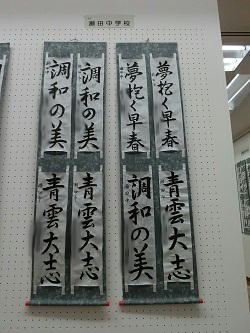 瀬田中学校
夢抱く早春
夢抱く早春
青雲大志
調和の美
調和の美
調和の美
青雲大志
青雲大志